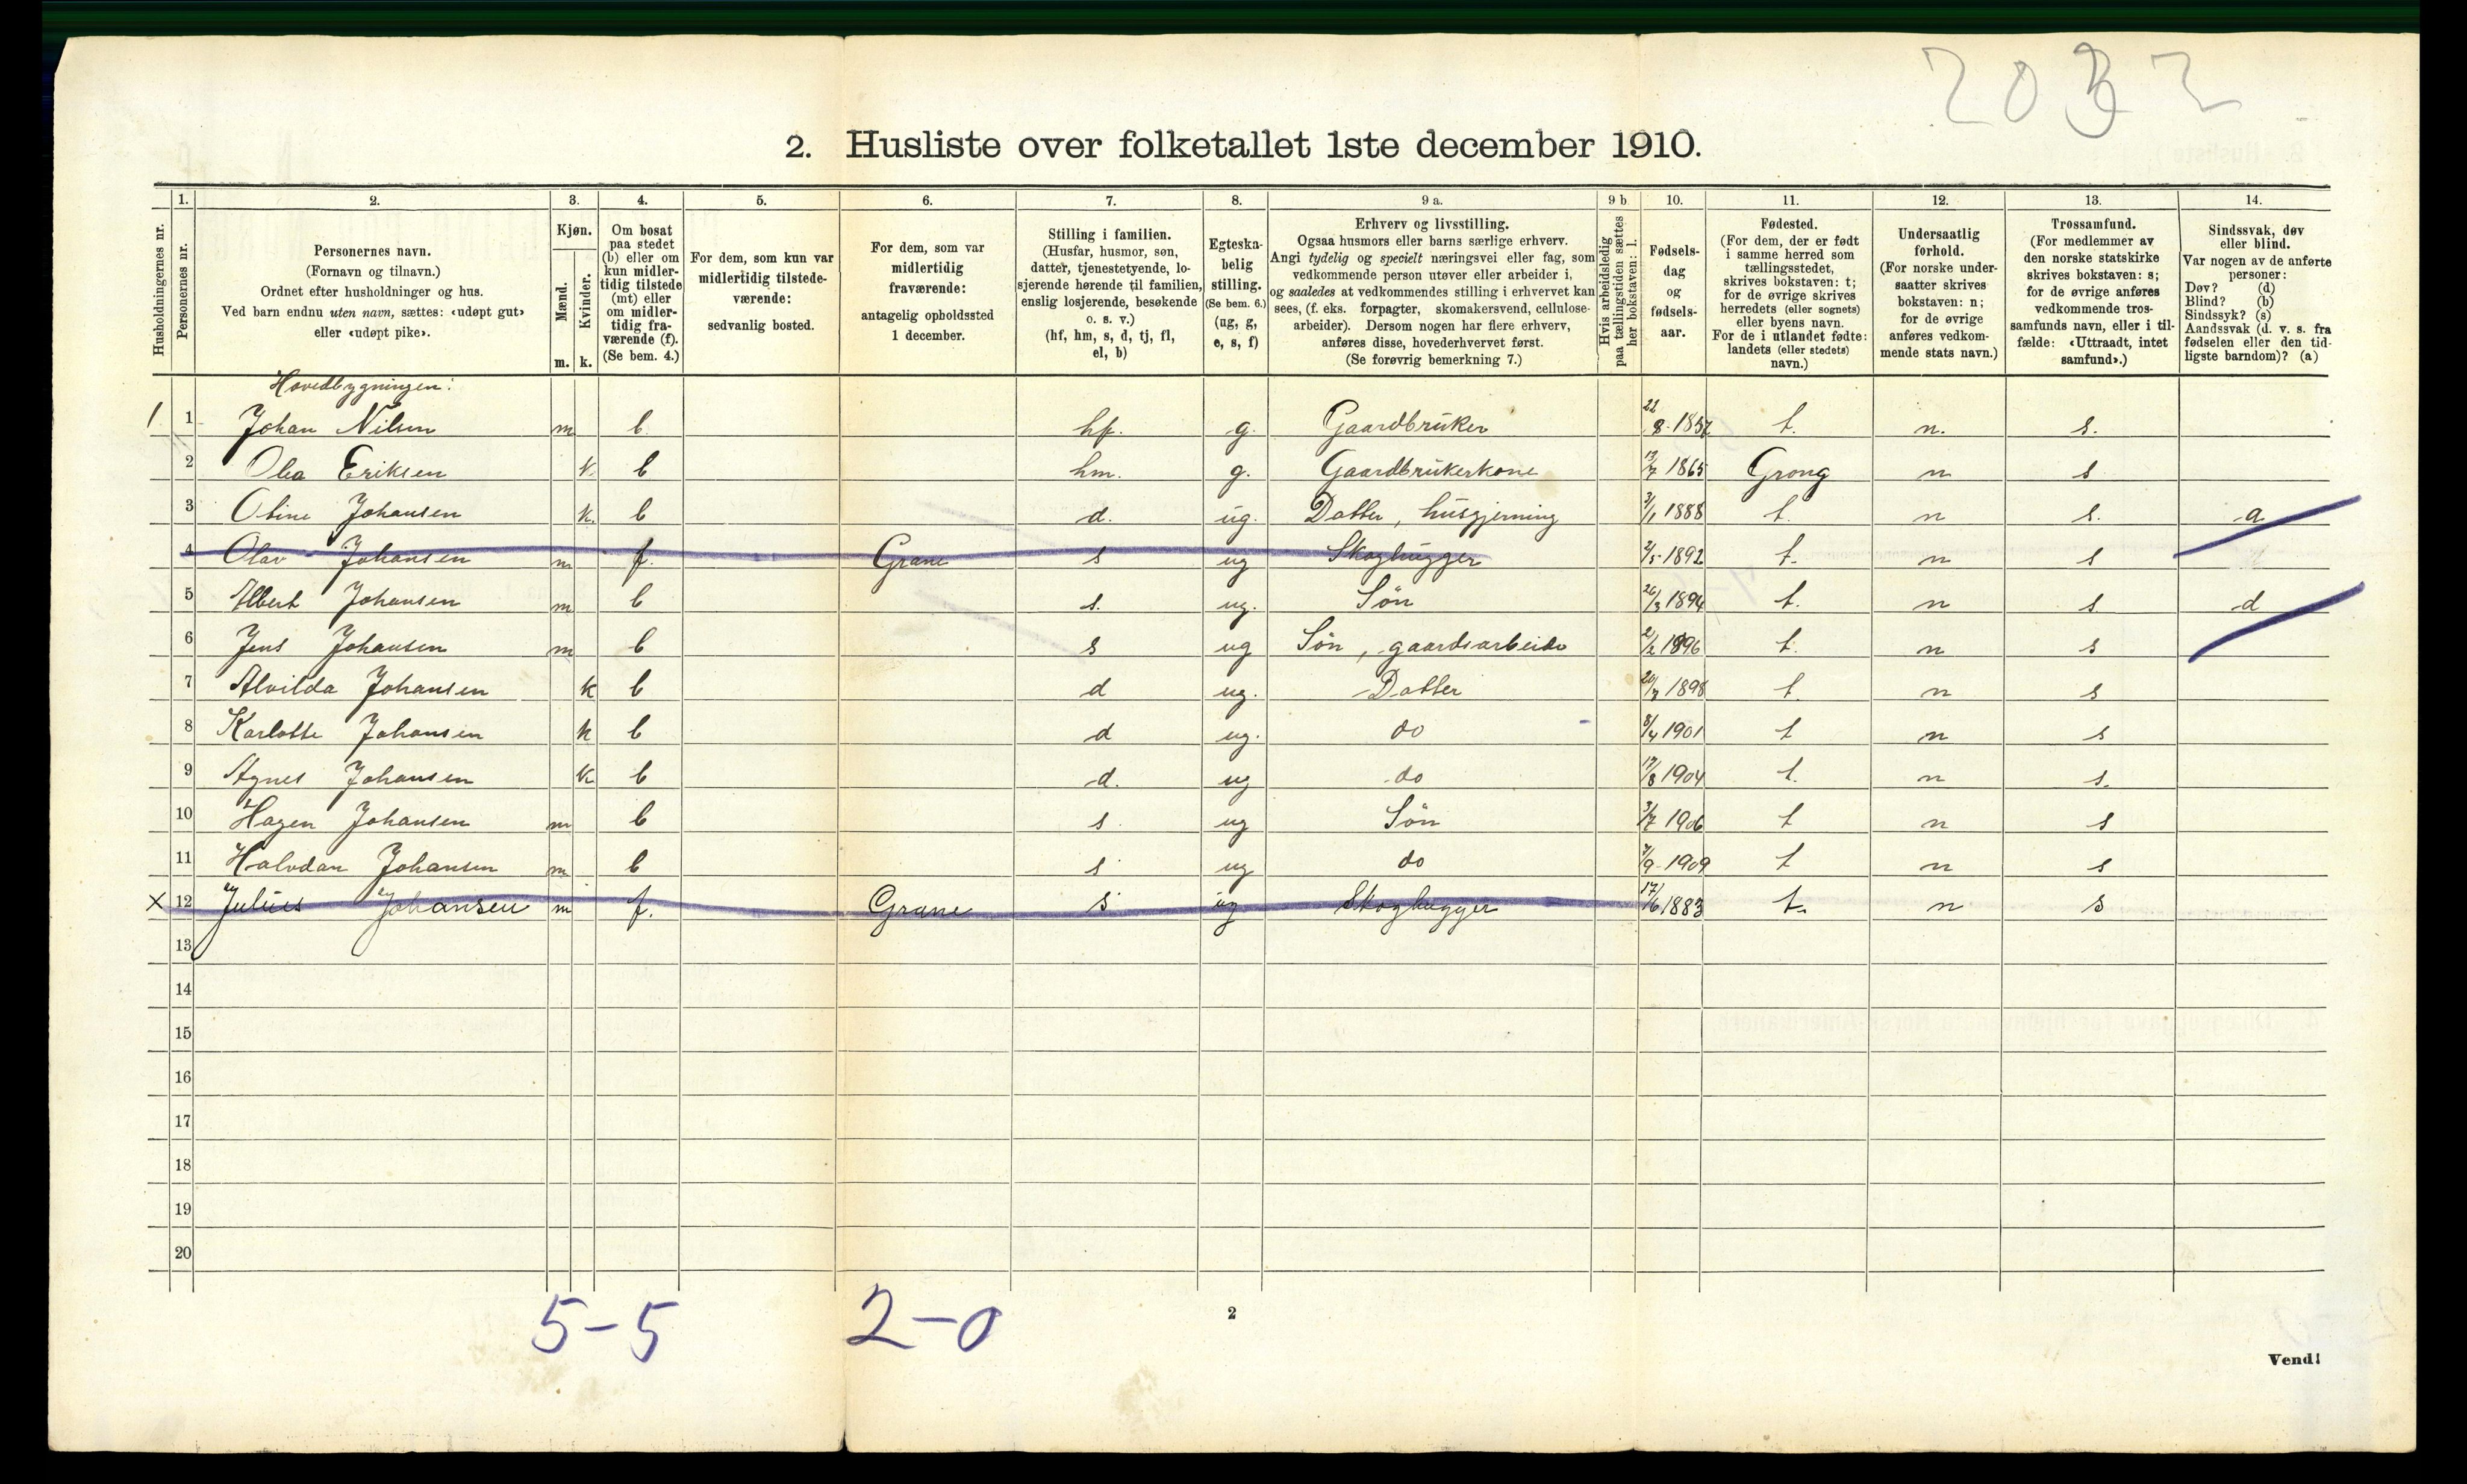 2032
2. Husliste over folketallet 1ste december 1910.
Husholdningernes nr.
1. Personernes nr.
2. Personernes navn.
(Fornavn og tilnavn.)
Ordnet efter husholdninger og hus.
Ved barn endnu uten navn, sættes: «udøpt gut»
eller «udøpt pike».
3. Kjøn.
Mænd. m.
Kvinder. k.
4. Om bosat
paa stedet
(b) eller om
kun midler-
tidig tilstede
(mt) eller
om midler-
tidig fra-
værende (f).
(Se bem. 4.)
5. For dem, som kun var
midlertidig tilstede-
værende:
sedvanlig bosted.
6. For dem, som var
midlertidig
fraværende:
antagelig opholdssted
1 december.
7. Stilling i familien.
(Husfar, husmor, søn,
datter, tjenestetyende, lo-
sjerende hørende til familien,
enslig losjerende, besøkende
o. s. v.)
(hf, hm, s, d, tj, fl,
el, b)
8. Egteska-
belig
stilling.
(Se bem. 6.)
(ug, g,
e, s, f)
9 a. Erhverv og livsstilling.
Ogsaa husmors eller barns særlige erhverv.
Angi tydelig og specielt næringsvei eller fag, som
vedkommende person utøver eller arbeider i,
og saaledes at vedkommendes stilling i erhvervet kan
sees, (f. eks. forpagter, skomakersvend, cellulose-
arbeider). Dersom nogen har flere erhverv,
anføres disse, hovederhvervet først.
(Se forøvrig bemerkning 7.)
9 b Hvis arbeidsledig
paa tællingstiden sættes
her bokstaven: l.
10. Fødsels-
dag
og
fødsels-
aar.
11. Fødested.
(For dem, der er født
i samme herred som
tællingsstedet,
skrives bokstaven: t;
for de øvrige skrives
herredets (eller sognets)
eller byens navn.
For de i utlandet fødte:
landets (eller stedets)
navn.)
12. Undersaatlig
forhold.
(For norske under-
saatter skrives
bokstaven: n;
for de øvrige
anføres vedkom-
mende stats navn.)
13. Trossamfund.
(For medlemmer av
den norske statskirke
skrives bokstaven: s;
for de øvrige anføres
vedkommende tros-
samfunds navn, eller i til-
fælde: «Uttraadt, intet
samfund».)
14. Sindssvak, døv
eller blind.
Var nogen av de anførte
personer:
Døv? (d)
Blind? (b)
Sindssyk? (s)
Aandssvak (d. v. s. fra
fødselen eller den tid-
ligste barndom)? (a)
Hovedbygningen:
1 1 Johan Nilsen m b hf. g. Gaardbruker 22/8 1857 t. n. s.
2 Olea Eriksen k b hm. g. Gaardbrukerkone 13/7 1865 Grong n s
3 Oline Johansen k. b d. ug. Datter, husgjerning 3/1 1888 t. n s. a
4 Olav Johansen m f. Grane s ug Skoghugger 2/5 1892 t. n s
5 Albert Johansen m b s. ug. Søn 26/3 1894 t. n s d
6 Jens Johansen m b s ug Søn, gaardsarbeide 2/2 1896 t. n s
7 Alvilda Johansen k b d ug. Datter 20/7 1898 t. n s
8 Karlotte Johansen k b d ug. do 8/4 1901 t n s
9 Agnes Johansen k b d. ug do 17/8 1904 t. n s.
10 Hagen Johansen m b s. ug Søn 3/7 1906 t n s
11 Halvdan Johansen m b s ug do 7/9 1909 t n s
X 12 Julius Johansen m f. Grane s ug Skoghugger 17/6 1883 t. n s
13
14
15
16
17
18
19
20
5-5 2-0
2
Vend!